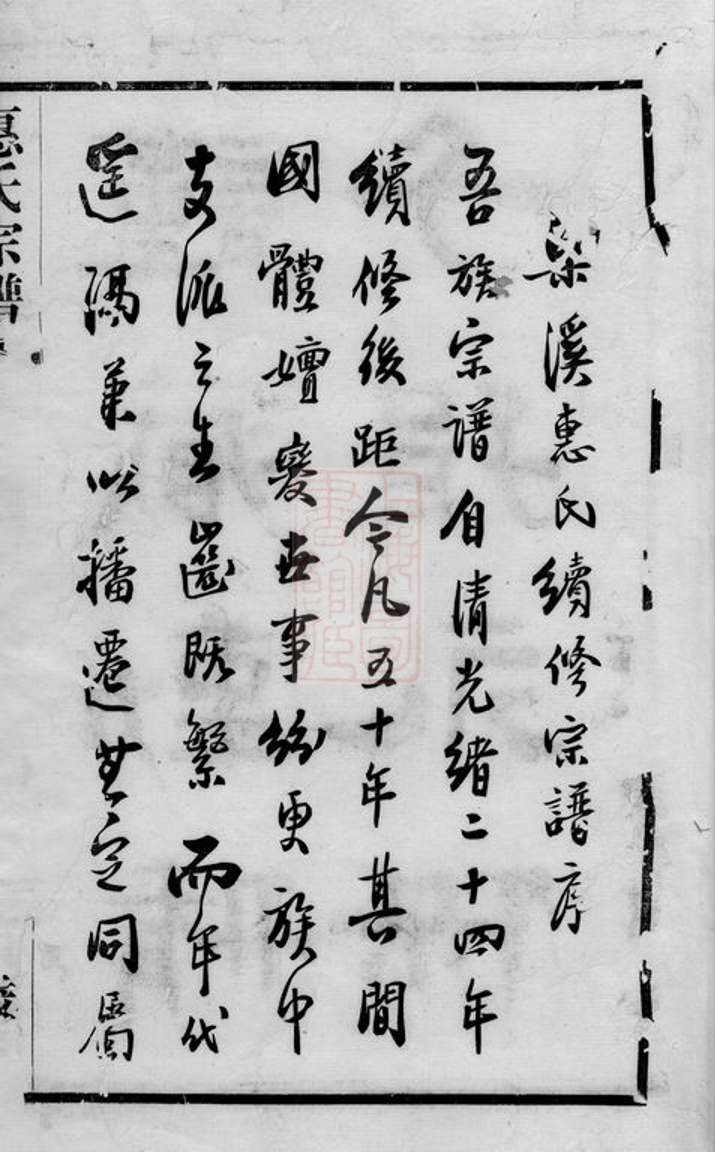 梁溪惠氏續修宗譜序
吾族宗譜自清光緒二十四年
續修後距今凡五十年其間
國體嬗變世事紛更族中
支派之生齒既繁而年代
遥隔兼以播遷無定同居
惠氏宗譜
序